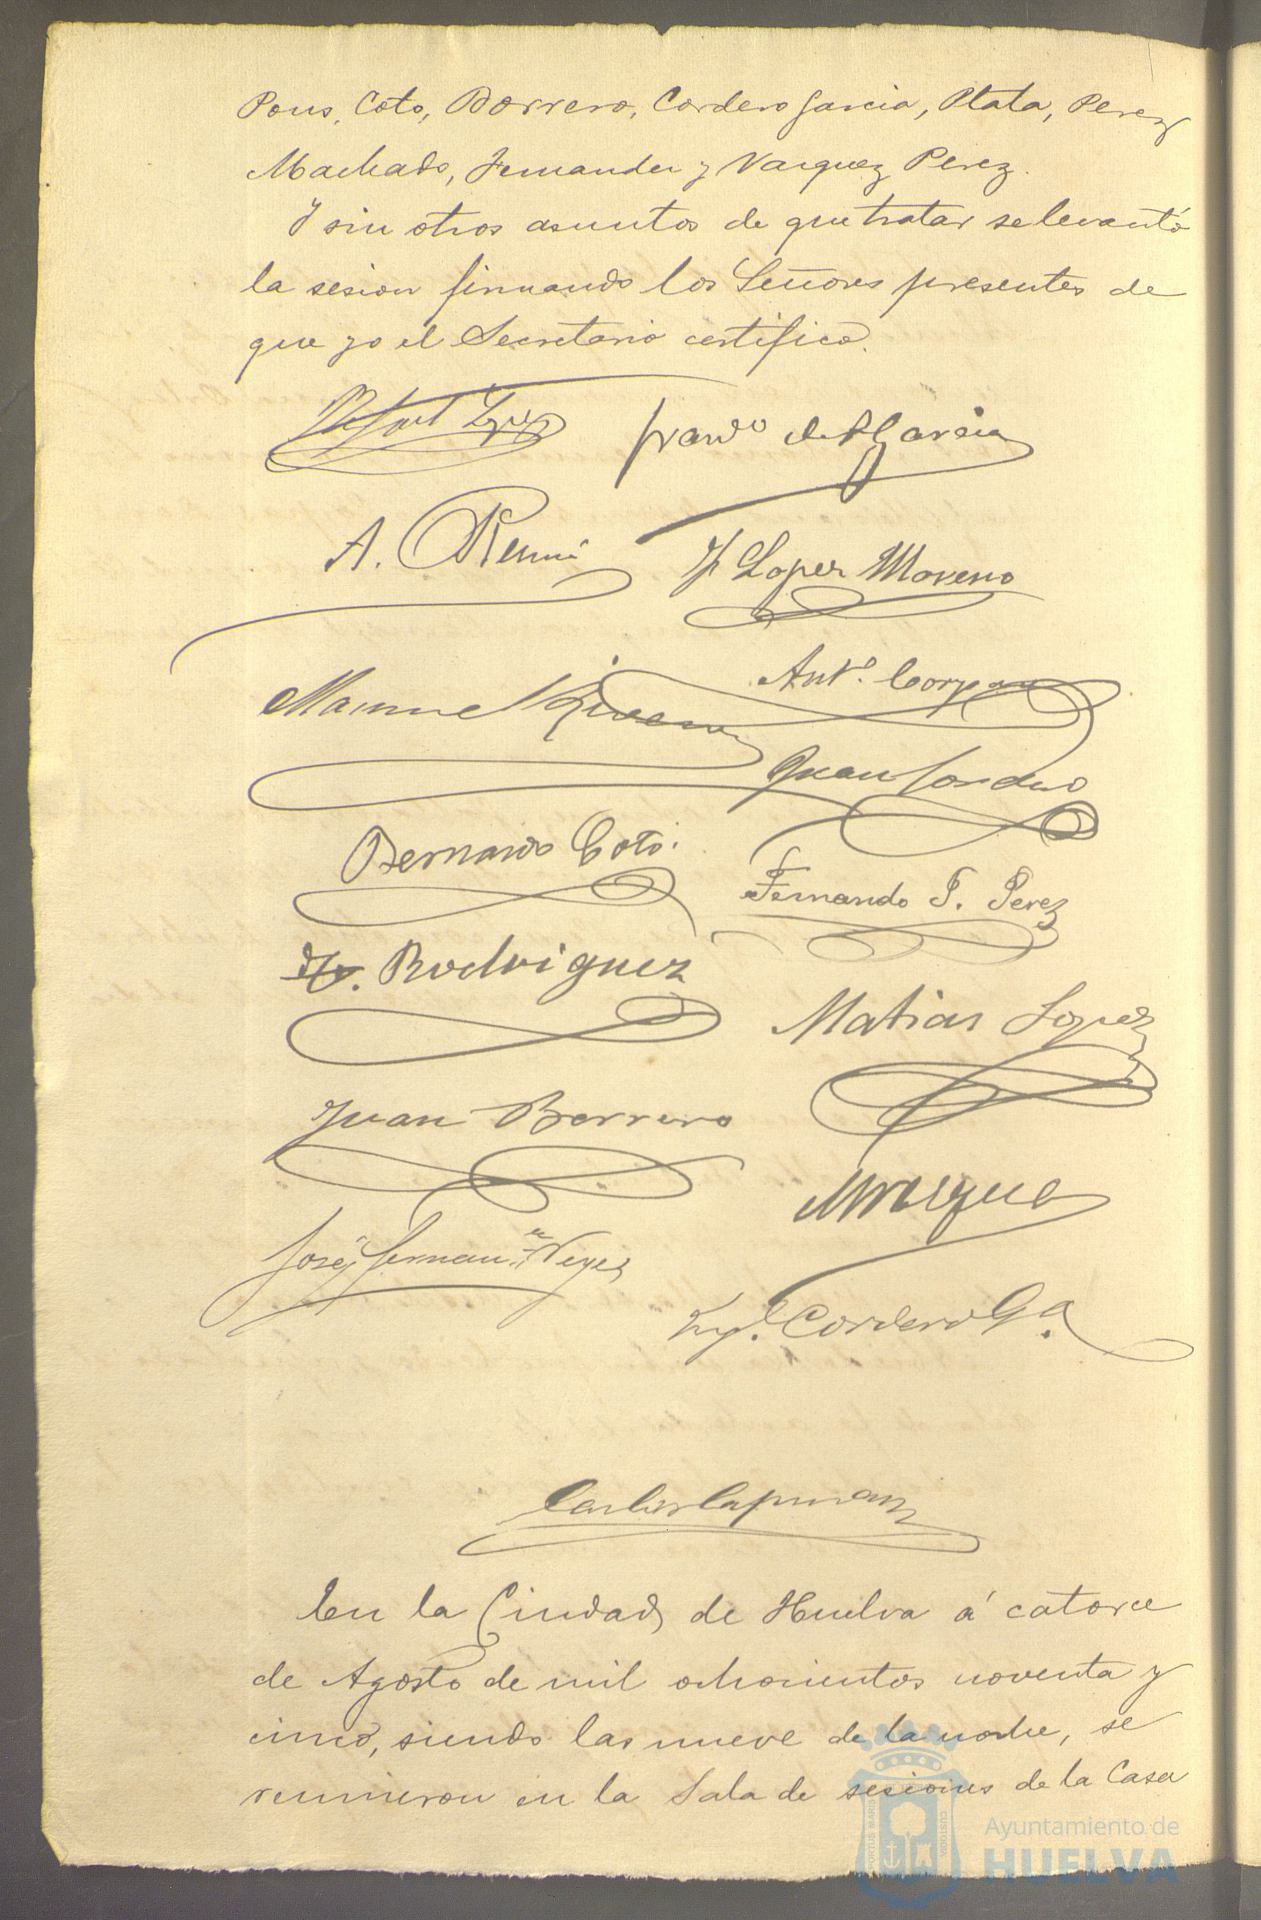 Pons, Coto, Borrero, Cordero Garcia, Plata, Perez
Machado, Fernandez y Vazquez Perez.
Y sin otros asuntos de que tratar se levantó
la sesion firmando los Señores presentes de
que yo el Secretario certifico.
Rafael Lopez
Franco de A Garcia
A.
J Lopez Moreno
Antº. Corpas
Manuel Rivera
Juan Cordero
Bernardo Coto.
Fernando P. Perez
Rodriguez
Matias Lopez
Juan Borrero
José Fernanz
Cordero Gª.
En la Ciudad de Huelva á catorce
de Agosto de mil ochocientos noventa y
cinco, siendo las nueve de la noche, se
reunieron en la Sala de sesiones de la Casa
PORTUS MARIS
CUSTODIA
Ayuntamiento de
HUELVA